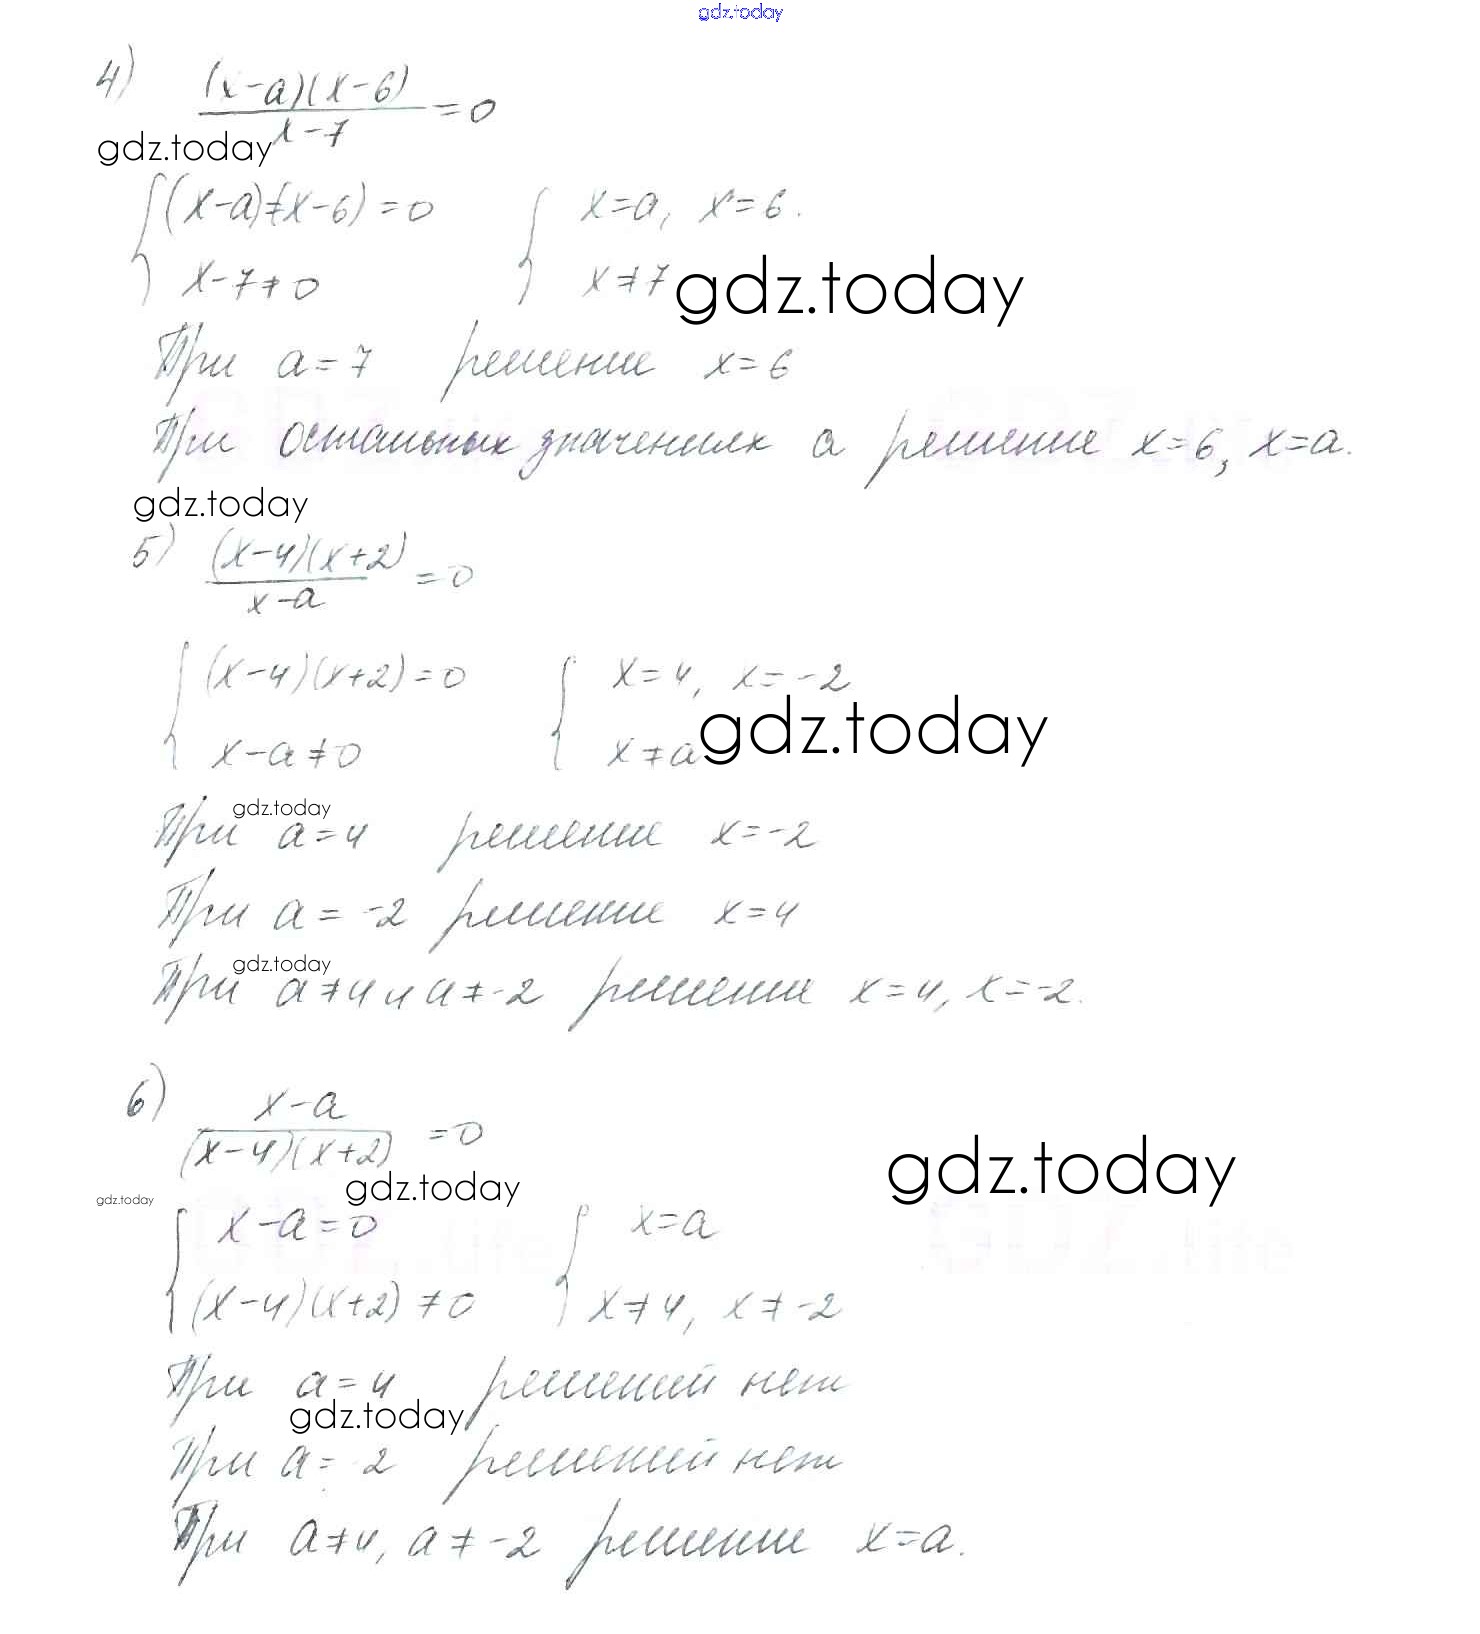 gdz.today
4) (x-a)(x-6)
x-7 =0
gdz.today
(x-a)=(x-6)=0 x=a, x=6.
x-7≠0 x≠7 gdz.today
При a=7 решение x=6
При остальных значениях a решение x=6, x=a.
gdz.today
5) (x-4)(x+2)
x-a =0
(x-4)(x+2)=0 x=4, x=-2
x-a≠0 x≠a gdz.today
gdz.today
При a=4 решение x=-2
При a=-2 решение x=4
gdz.today
При a≠4 и a≠-2 решение x=4, x=-2.
6) x-a
(x-4)(x+2) =0
gdz.today
gdz.today
gdz.today
x-a=0 x=a
(x-4)(x+2)≠0 x≠4, x≠-2
При a=4 решений нет
gdz.today
При a=-2 решений нет
При a≠4, a≠-2 решение x=a.